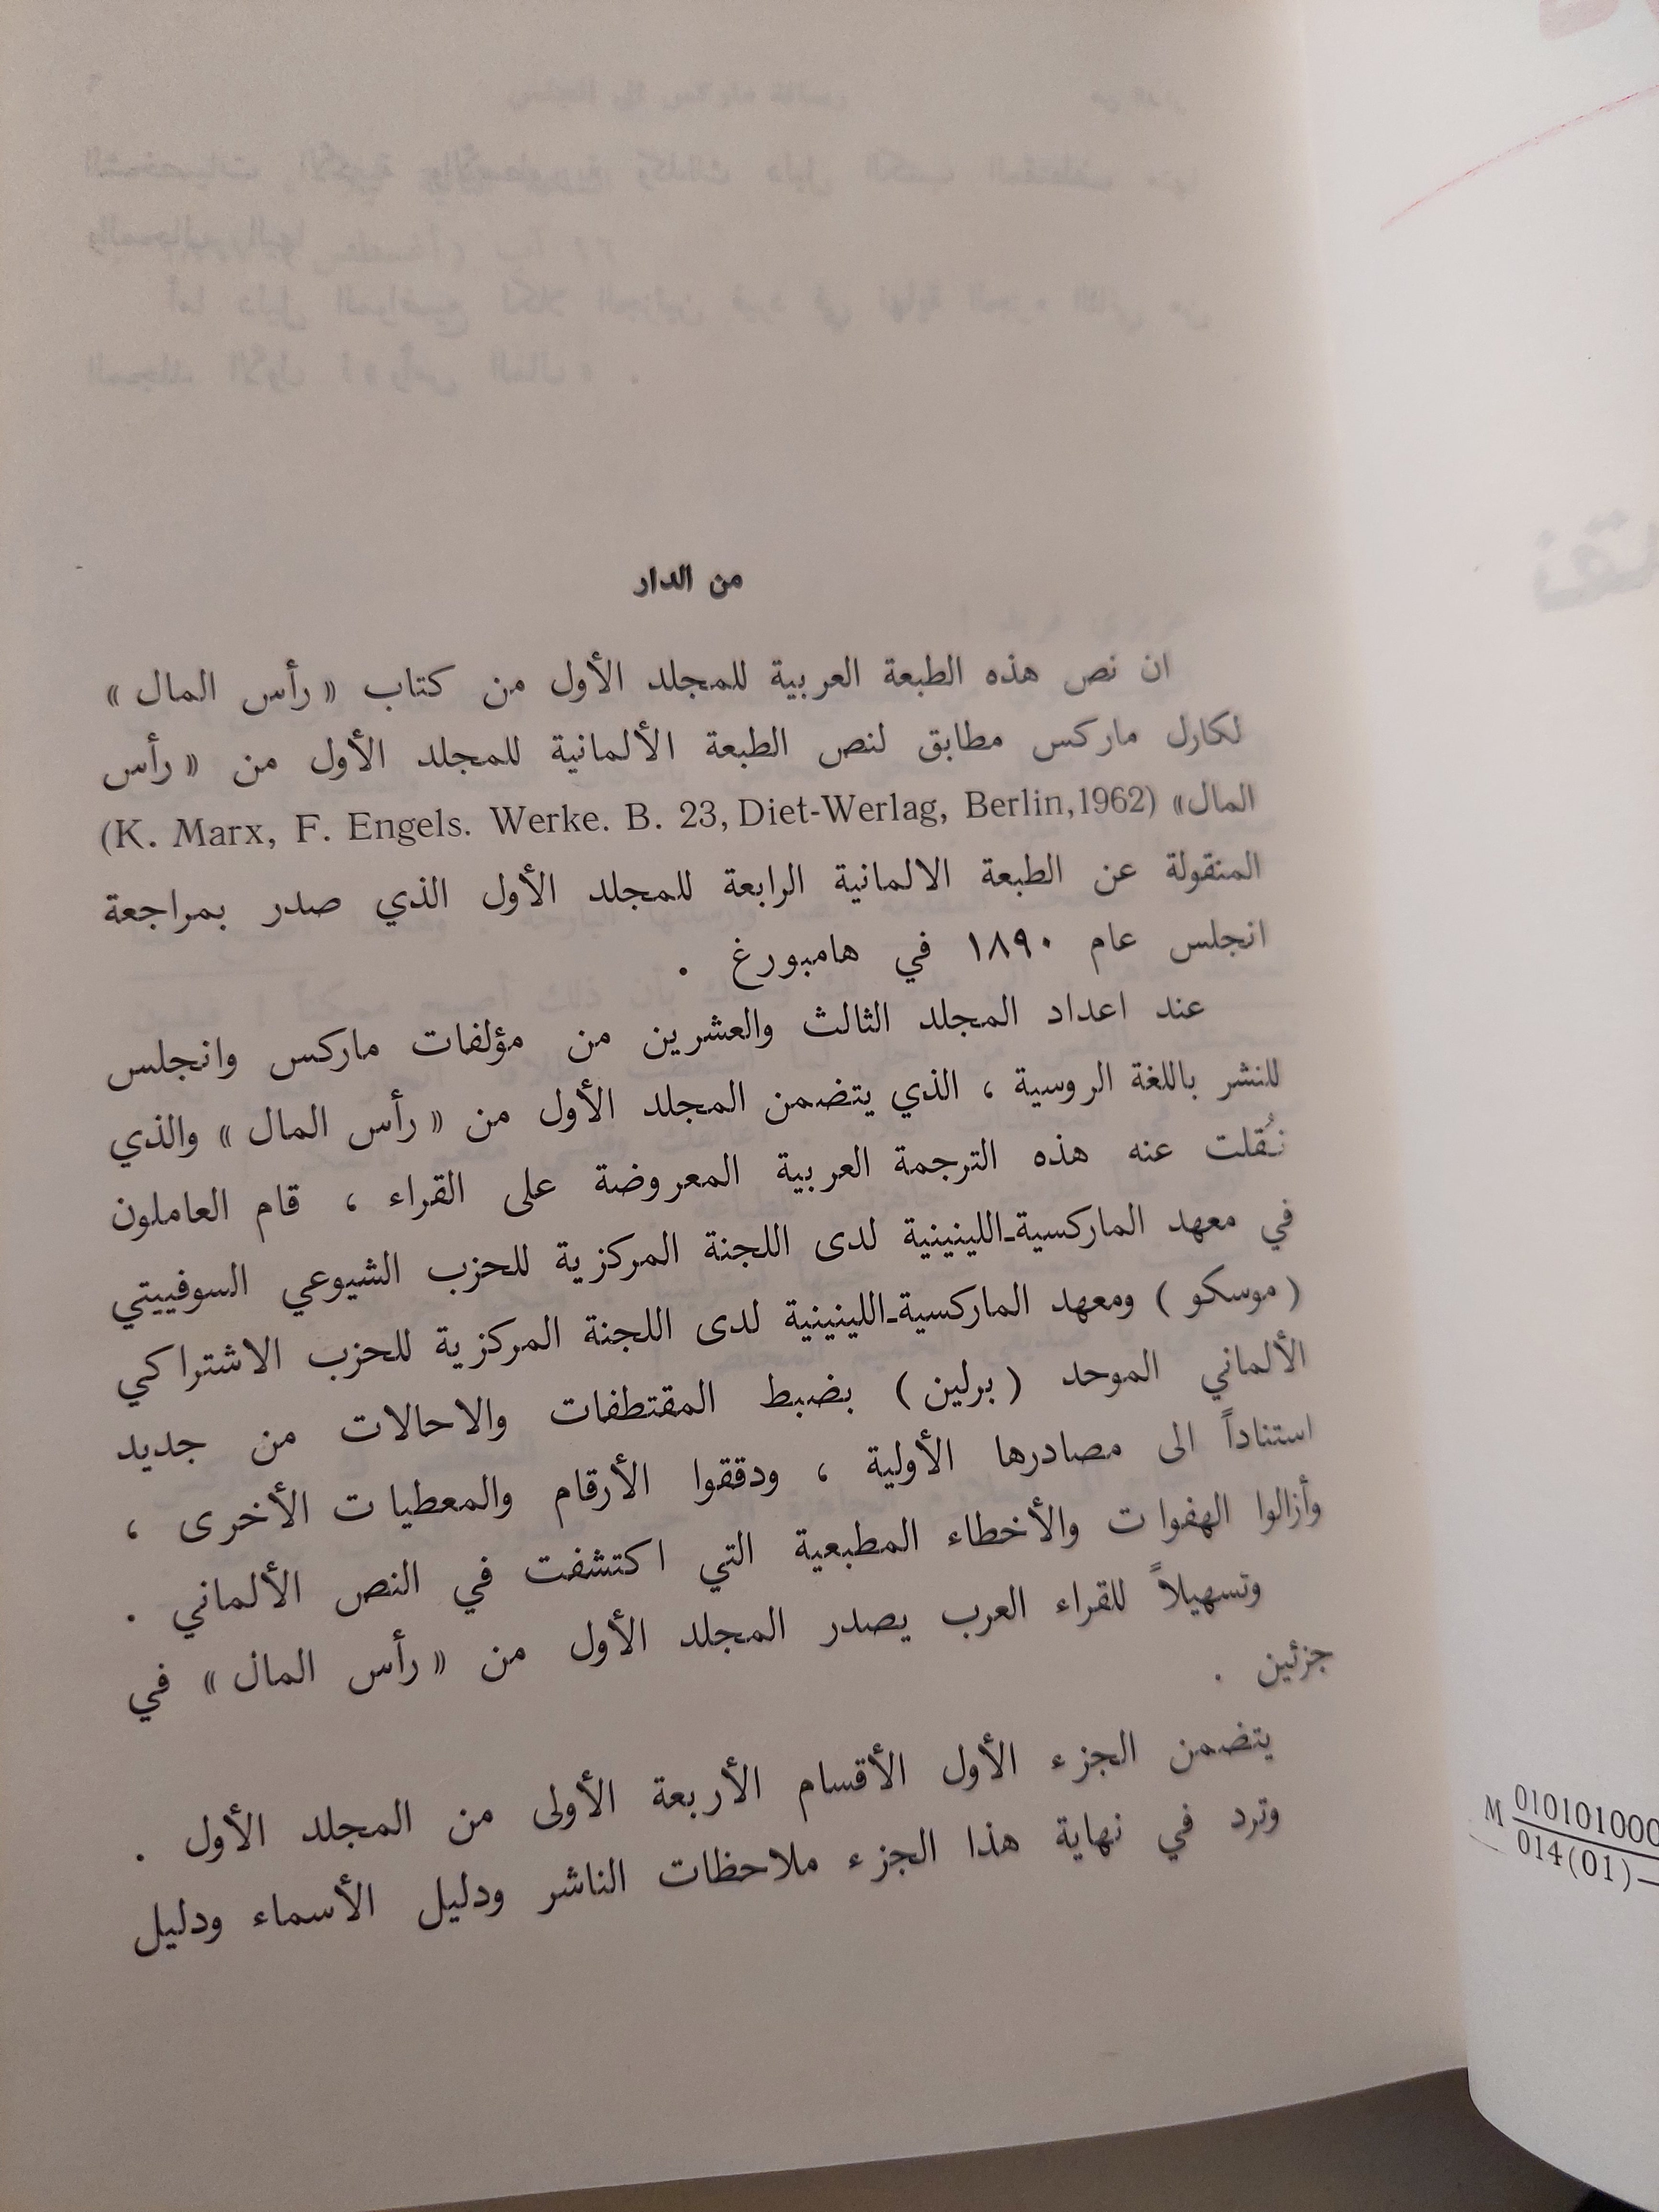 من الدار
ان نص هذه الطبعة العربية للمجلد الأول من كتاب « رأس المال »
لكارل ماركس مطابق لنص الطبعة الألمانية للمجلد الأول من « رأس
المال» (K. Marx, F. Engels. Werke. B. 23, Diet-Werlag, Berlin,1962)
المنقولة عن الطبعة الالمانية الرابعة للمجلد الأول الذي صدر بمراجعة
انجلس عام ١٨٩٠ في هامبورغ .
عند اعداد المجلد الثالث والعشرين من مؤلفات ماركس وانجلس
للنشر باللغة الروسية ، الذي يتضمن المجلد الأول من « رأس المال » والذي
نُقلت عنه هذه الترجمة العربية المعروضة على القراء ، قام العاملون
في معهد الماركسية-اللينينية لدى اللجنة المركزية للحزب الشيوعي السوفييتي
( موسكو ) ومعهد الماركسية-اللينينية لدى اللجنة المركزية للحزب الاشتراكي
الألماني الموحد ( برلين ) بضبط المقتطفات والاحالات من جديد
استناداً الى مصادرها الأولية ، ودققوا الأرقام والمعطيات الأخرى ،
وأزالوا الهفوات والأخطاء المطبعية التي اكتشفت في النص الألماني .
وتسهيلاً للقراء العرب يصدر المجلد الأول من « رأس المال » في
جزئين .
يتضمن الجزء الأول الأقسام الأربعة الأولى من المجلد الأول .
وترد في نهاية هذا الجزء ملاحظات الناشر ودليل الأسماء ودليل
M 010101000
014(01)—